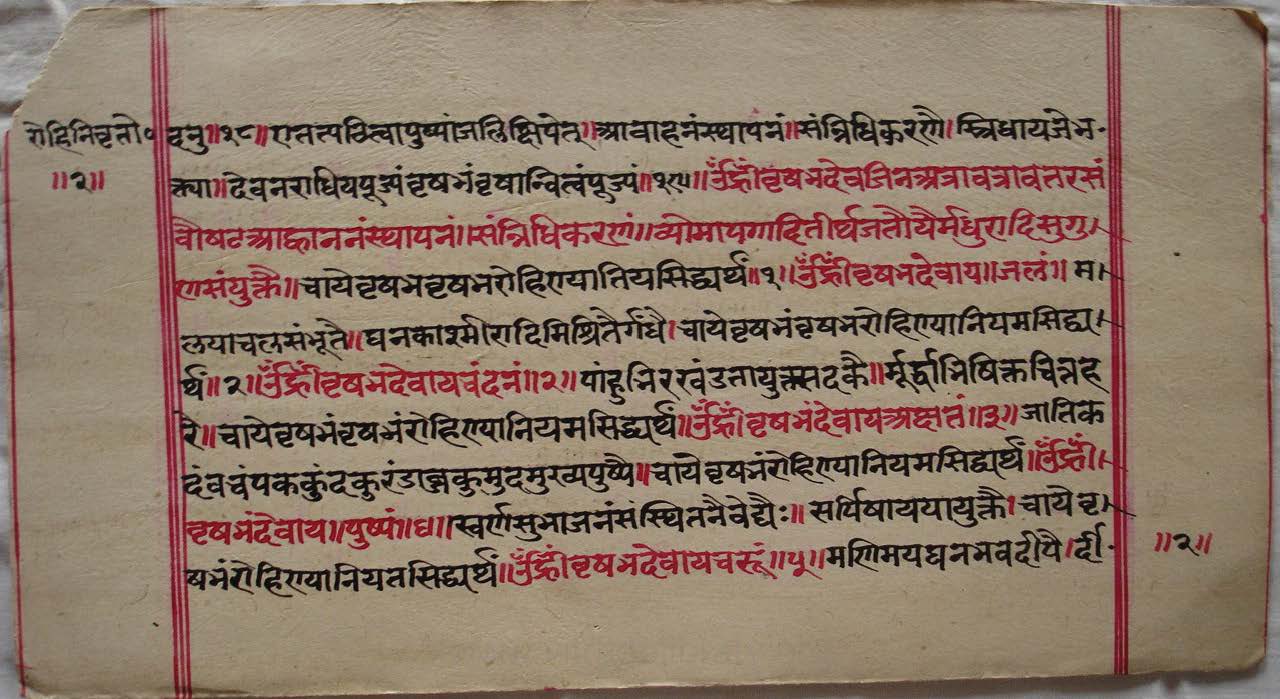 रोहिनिवृतो० दनु॥१८॥एतत्पठित्वापुष्पांजलिंक्षिपेत्।आवाहनंस्थापनं॥संन्निधिकरणै।स्त्रिधायजेभ-
॥२॥ क्त्या॥देवनराधियपूज्यंवृषभंवृषान्वित्वंपूज्यं॥१९॥ॐह्रीवृषभदेवजिनअत्रावत्रावतरसं
वौषटआह्वाननंस्थापनं॥संन्निधिकरणं॥व्योमापगादितीर्थजतौयैर्मधुरादिसुगु।
णसंयुक्तै॥चायेवृषभवृषभरोहिण्यातियसिद्ध्यर्थं॥१॥ॐह्रीवृषभदेवाय॥जलं॥म।
लयाचलसंभूतै॥घनकाश्मीरादिमिश्रितैर्गंधै।चायेवृषभंवृषभरोहिण्यानियमसिद्ध्य।
र्थं॥२॥ॐह्रीवृषभदेवायचंदनं॥२॥पांडुभिरखंडतायुक्तसदकै॥मूर्द्धाभिषिक्तचित्तह
रै॥चायेवृषभंवृषभंरोहिण्यानियमसिद्ध्यर्थं॥ॐह्रीवृषभंदेवायअक्षतं॥३॥जातिक
दंवचंपककुंदकुरंडाब्जकुमुदमुख्यपुष्पै॥चायेवृषभंरोहिण्यानियमसिद्ध्यर्थं॥ॐह्री।
वृषभंदेवाय॥पुष्पं॥४॥स्वर्णसुभाजनंसंस्थितनैवेद्यैः॥सर्पिषाययायुक्तै।चायेवृ।
षभंरोहिण्यानियतसिद्ध्यर्थं॥ॐह्रीवृषभदेवायचरूं॥५॥मणिमयघनभवदीपै।र्दी- ॥२॥